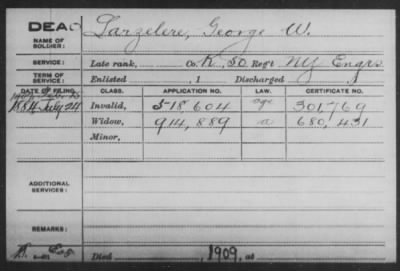 DEAD
NAME OF SOLDIER: Larzelere, George W.
SERVICE: Late rank, Co. K, 50 Reg't NY Engrs
TERM OF SERVICE: Enlisted , 1 Discharged , 1
DATE OF FILING. CLASS. APPLICATION NO. LAW. CERTIFICATE NO.
1884 July 24 Invalid, 518,604 age 301,769
Widow, 914,889 a 680,431
Minor,
ADDITIONAL SERVICES:
REMARKS:
Died , 1909, at